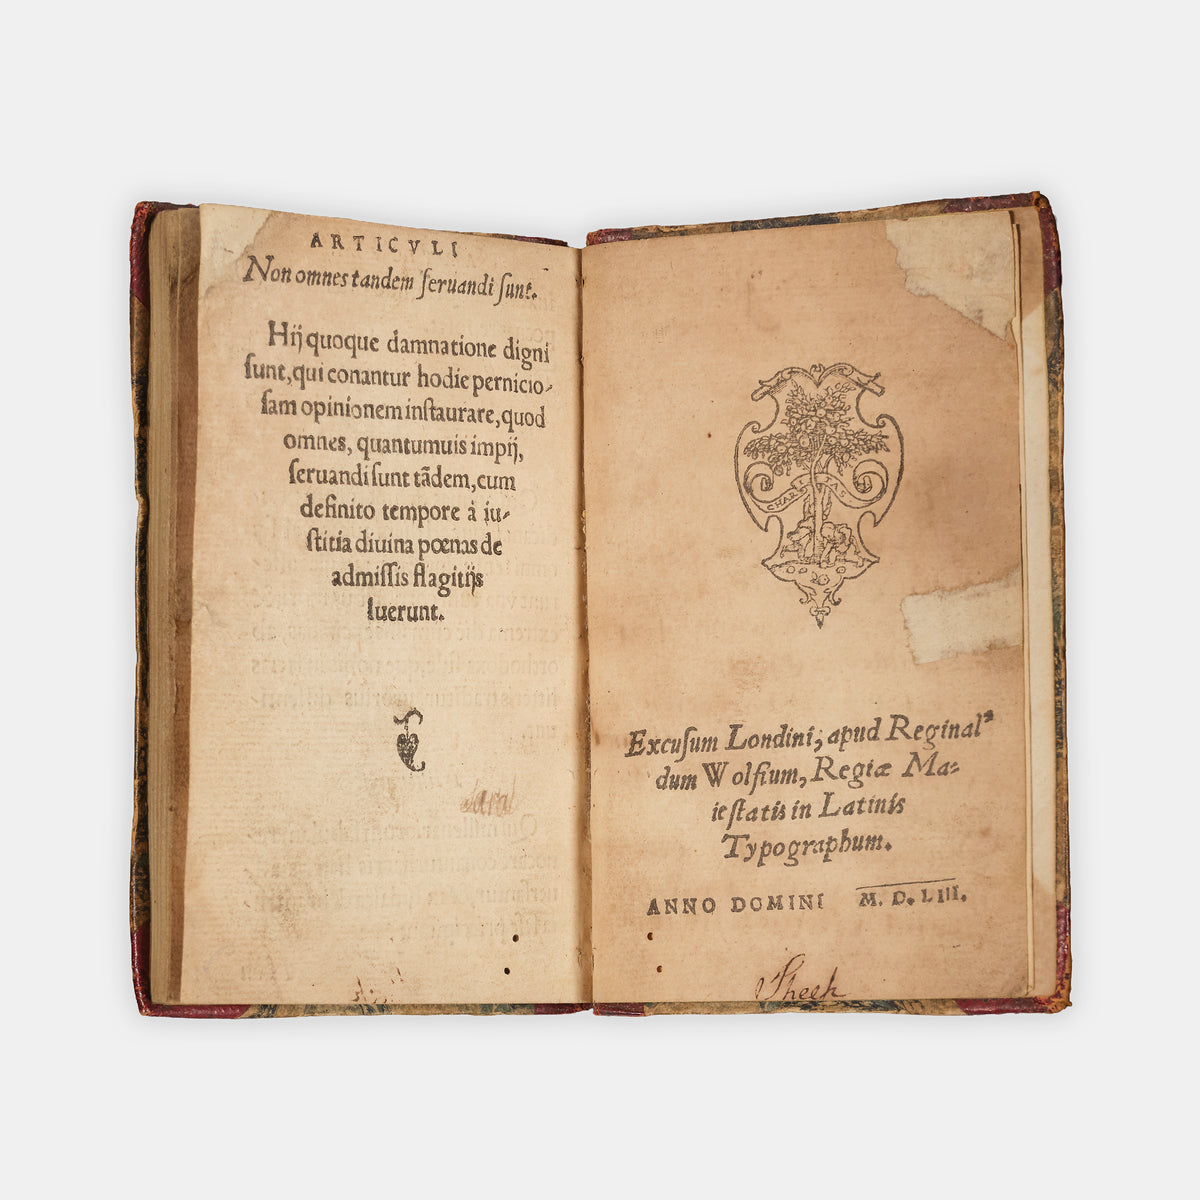 ARTICVLI
Non omnes tandem ſeruandi ſunt.
Hij quoque damnatione digni
ſunt, qui conantur hodie pernicio-
ſam opinionem inſtaurare, quod
omnes, quantumuis impij,
ſeruandi ſunt tãdem, cum
definito tempore à iu-
ſtitia diuina pœnas de
admiſſis flagitijs
luerunt.
CHARITAS
Excuſum Londini, apud Reginal-
dum Wolfium, Regiæ Ma-
ieſtatis in Latinis
Typographum.
ANNO DOMINI M. D. LIII.